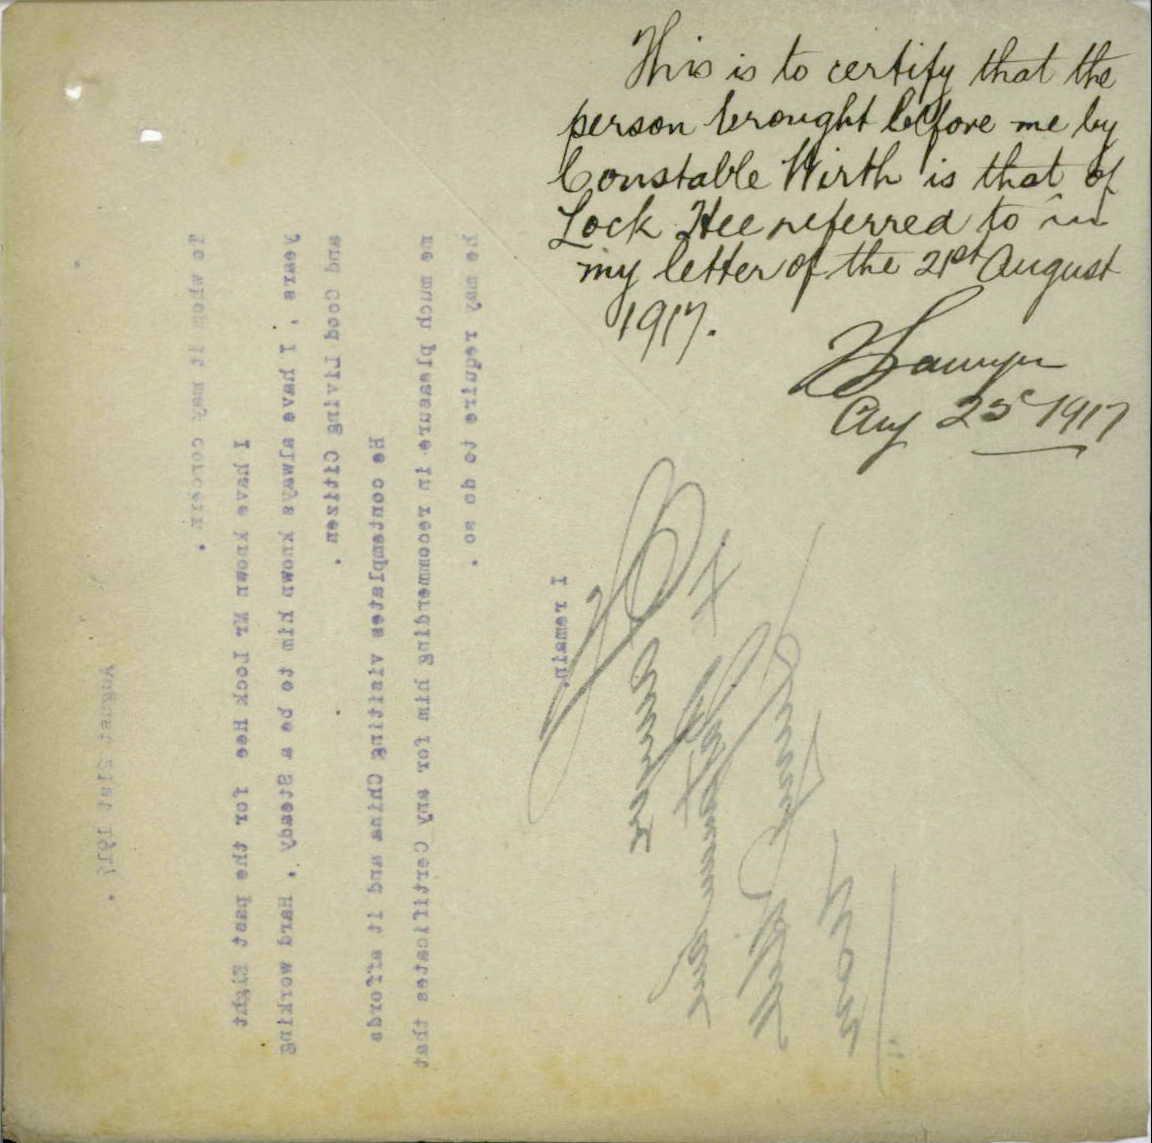 This is to certify that the
person brought before me by
Constable Wirth is that of
Lock Hee referred to in
my letter of the 21st August
1917.
Aug 25 1917
August 21st 1917.
To whom it may concern.
I have known Mr Lock Hee for the past Eight
years, I have always known him to be a Steady, Hard working
and Good Living Citizen.
He contemplates visiting China and it affords
me much pleasure in recommending him for any Certificates that
he may require to do so.
I remain,